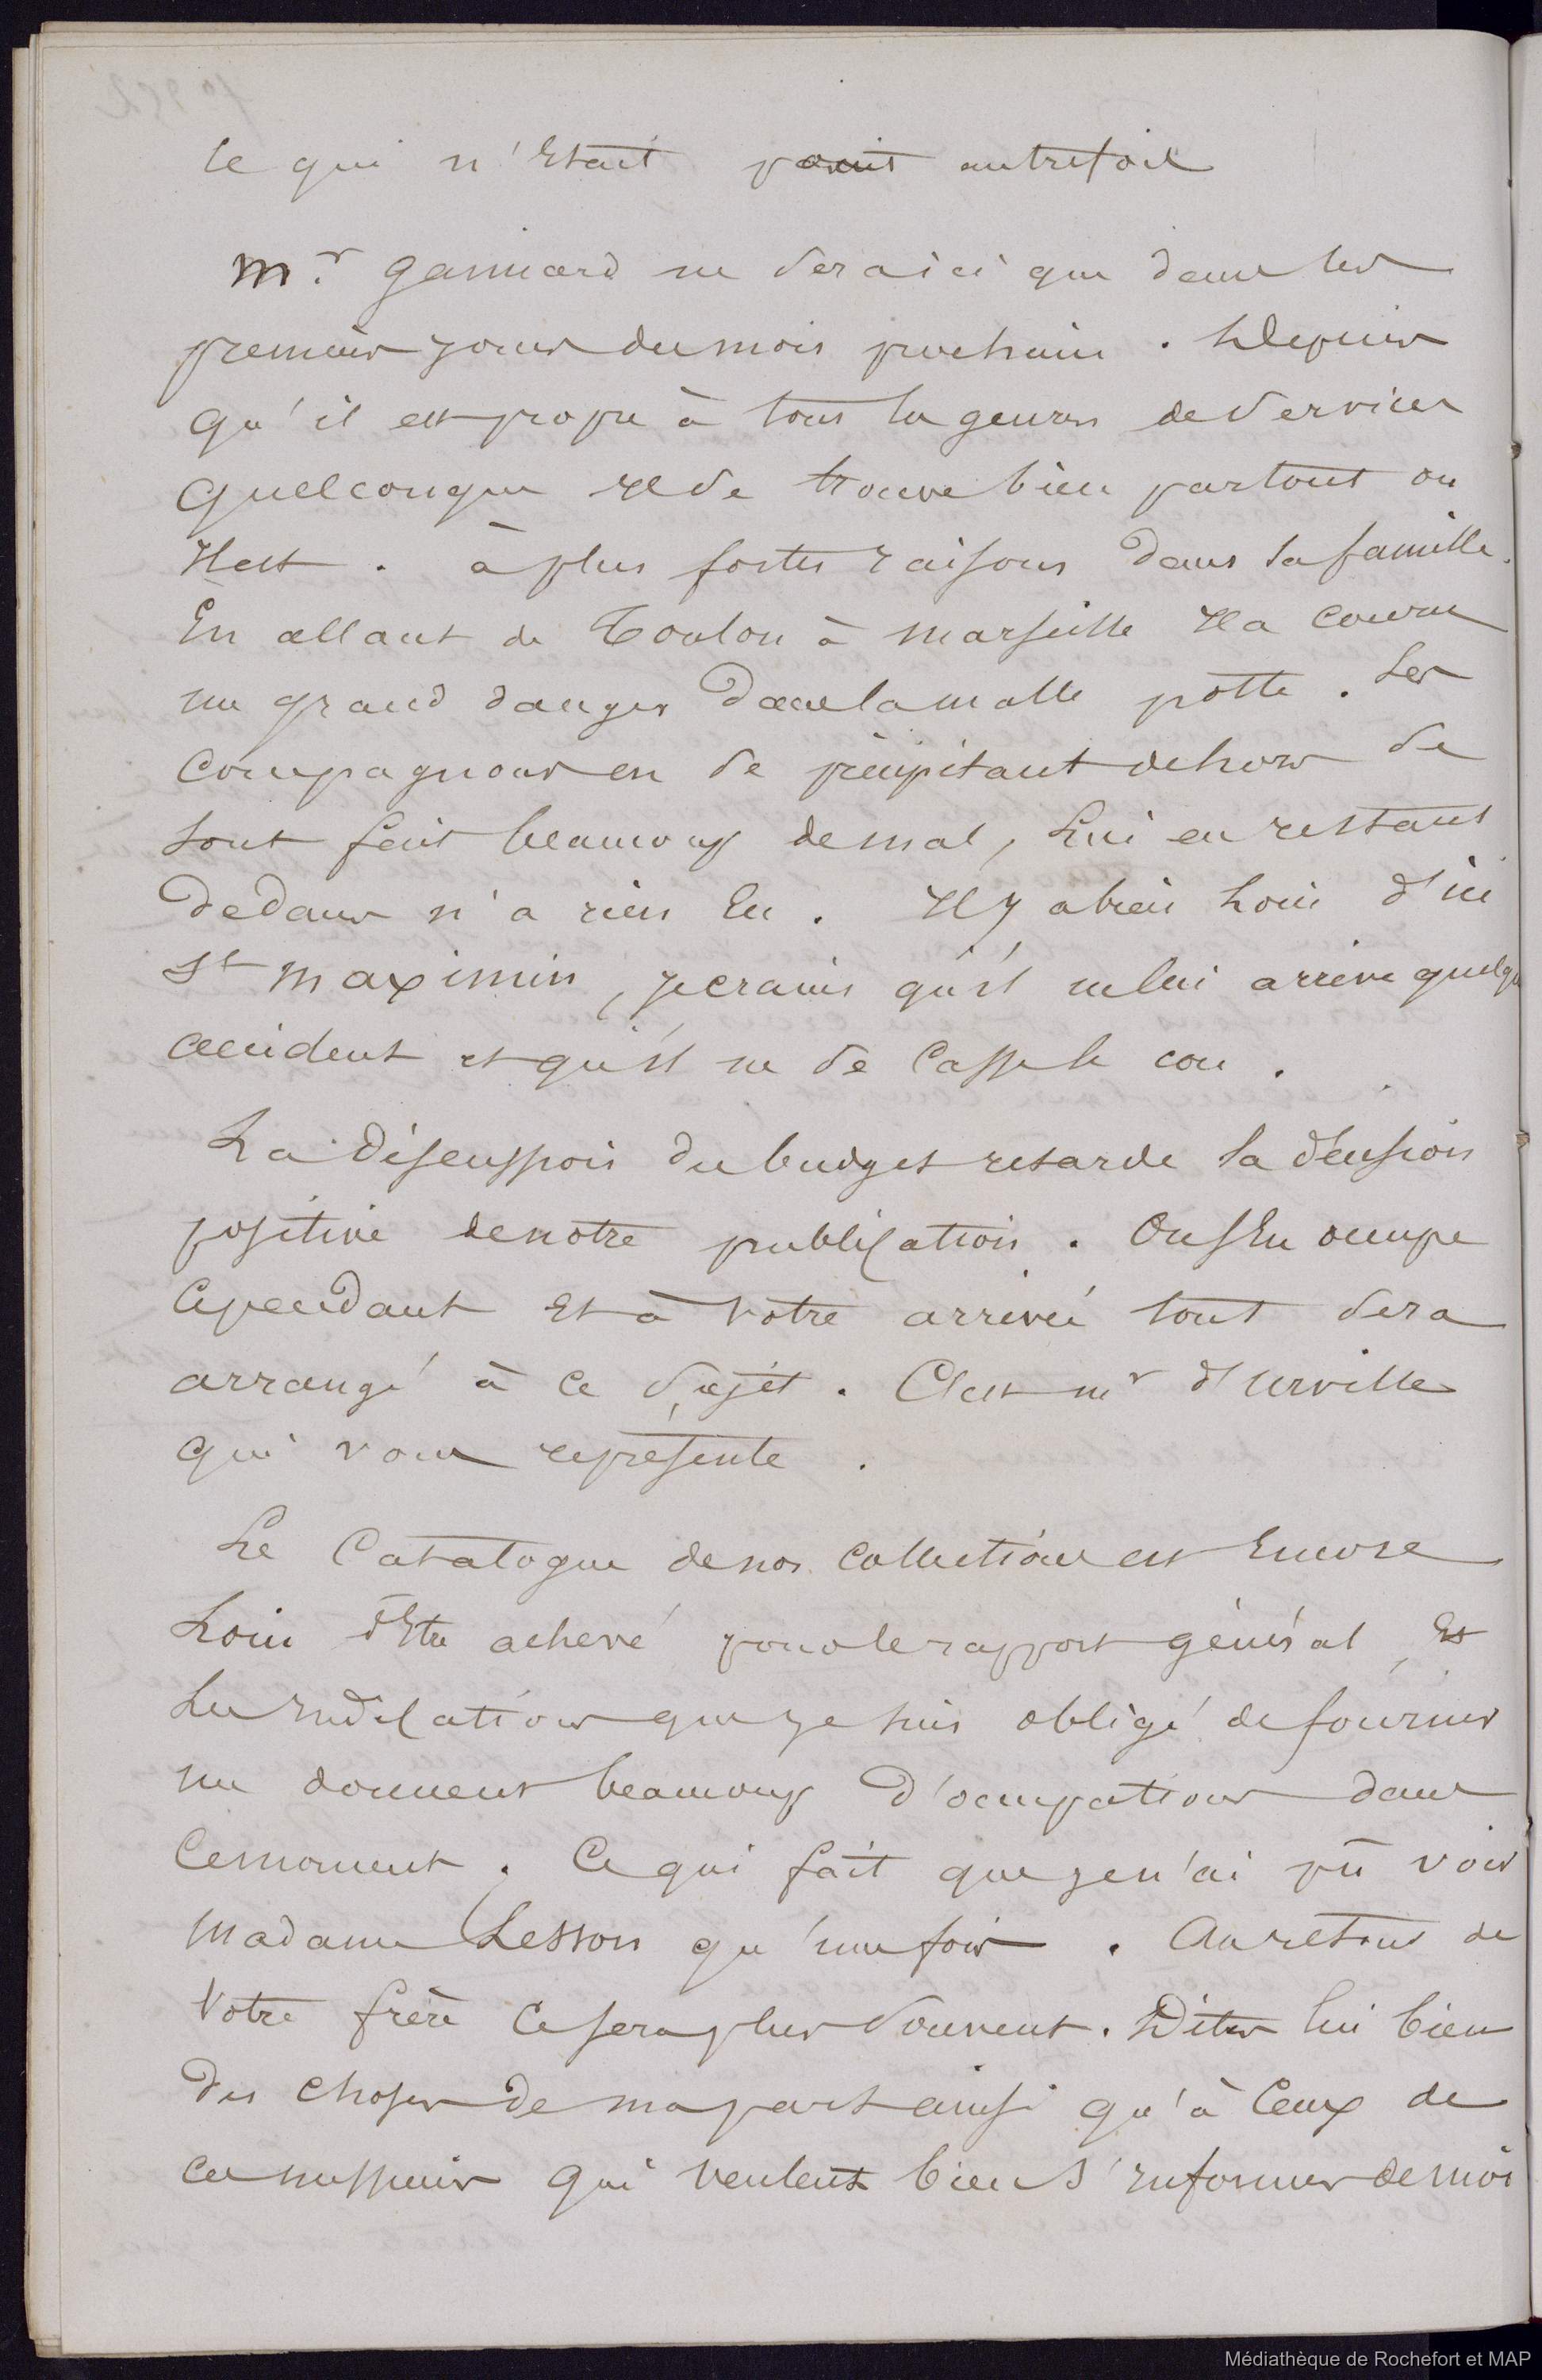 ce qui n'était point autrefois
Mr. Gaimard ne sera ici que dans les
premiers jours du mois prochain. Depuis
qu'il est propre à tous les genres de services
quelconque il se trouve bien partout ou
il est. à plus fortes raisons dans sa famille.
En allant de Toulon à Marseille il a couru
un grand danger dans la malle poste. Ses
compagnons en se précipitant dehors se
sont fait beaucoup de mal, lui en restant
dedans n'a rien eu. Il y a bien loin d'ici
St Maximin, je crains qu'il ne lui arrive quelque
accident et qu'il ne se casse le cou.
La discussion du budget retarde la décision
positive de notre publication. On s'en occupe
cependant et à votre arrivée tout sera
arrangé à ce sujet. C'est mr d'Urville
qui vous représente.
Le Catalogue de nos collections est encore
loin d'être achevé pour le rapport général, et
les indications que je suis obligé de fournir
me donnent beaucoup d'occupations dans
ce moment. Ce qui fait que je n'ai pû voir
Madame Lesson qu'une fois. Au retour de
votre frère ce sera plus souvent. Dites lui bien
des choses de ma part ainsi qu'à ceux de
ces messieurs qui veulent bien s'informer de moi
Médiathèque de Rochefort et MAP